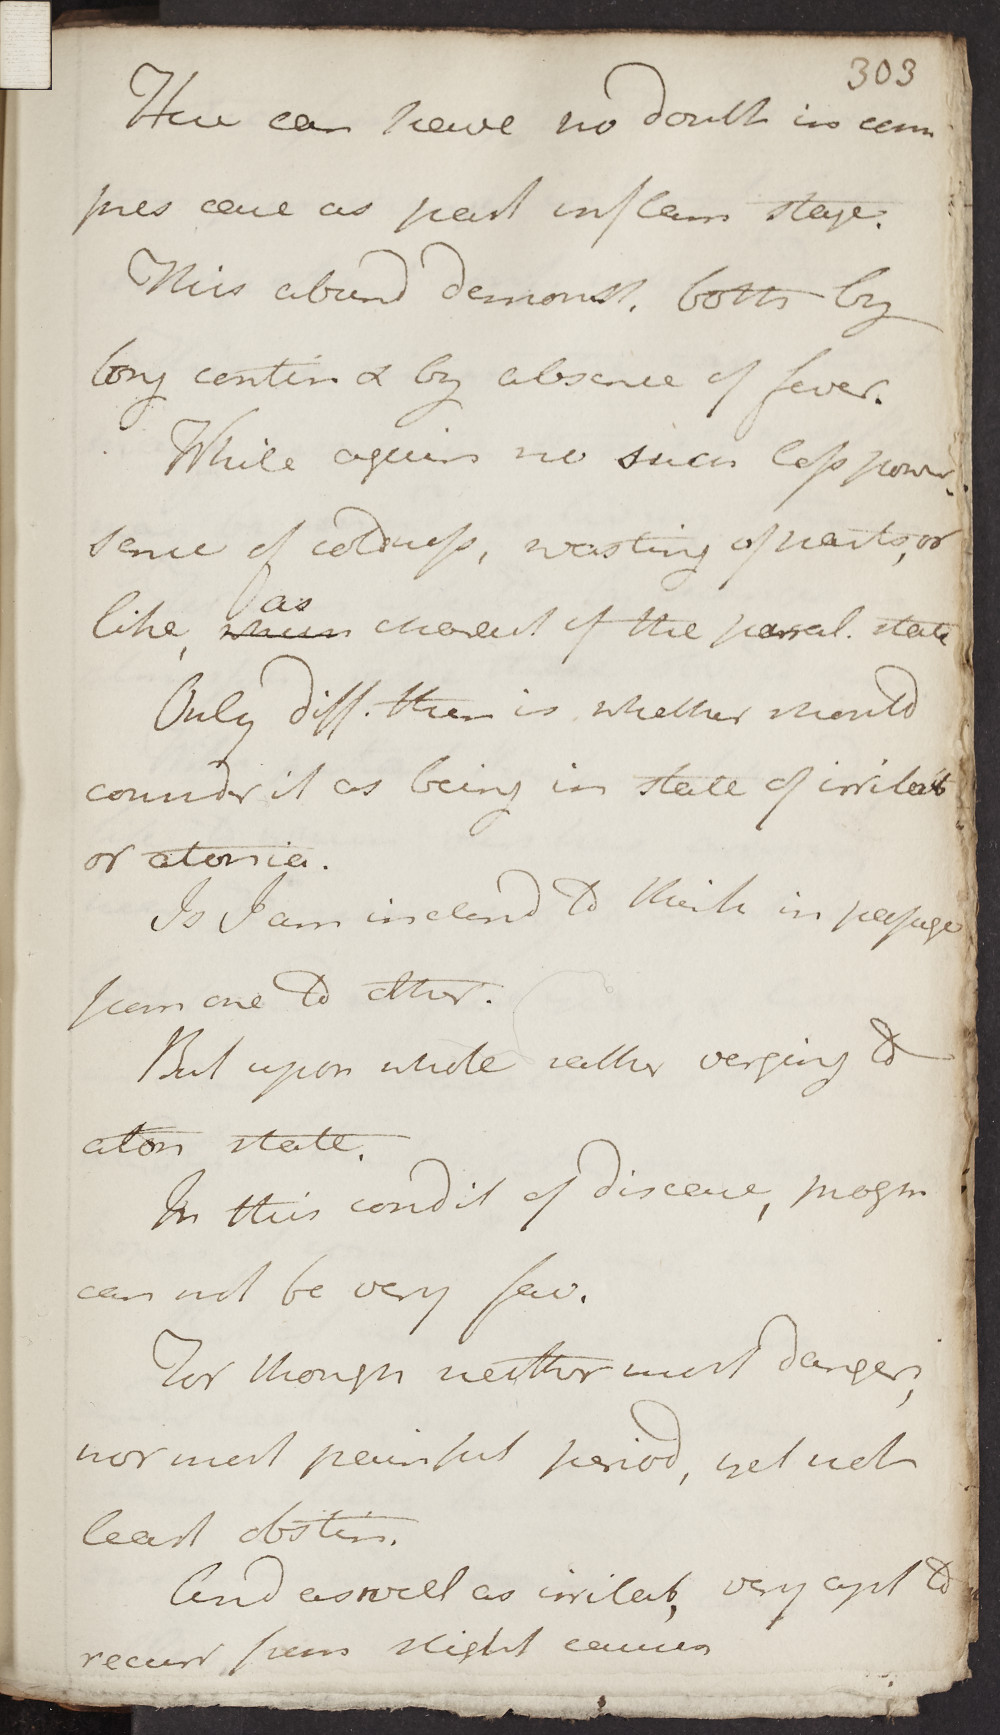 303
Here can have no doubt in com
pres case as past inflam stage.
This abund demonst. both by
long contin & by absence of fever.
While again no such loss power,
sense of coldness, wasting of parts, or
like, as charact of the paral. state
Only diff. then is whether should
consider it as being in state of irritab
or atonia.
Is I am inclend to think in passage
from one to other.
But upon whole rather verging to
aton state.
In this condit of disease, progn
can not be very fav.
For though neither most danger,
nor most painful period, yet not
least obstin.
And as well as irritab, very apt to
recurr from slight causes